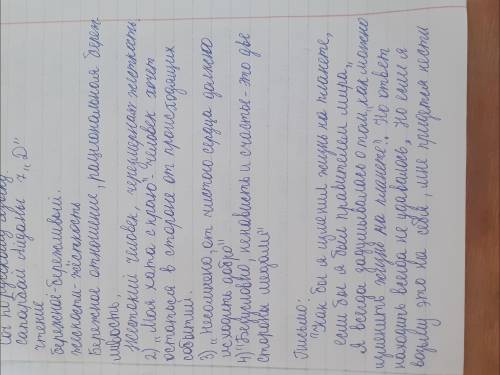 Соч по русскому языку.
сапарбай Айдалвы 7 „Д"
чтение
бережное-бережливый.
жестокость-жёсткость
Бережное отношение, рациональная береж-
ливость.
Жёсткий человек, чрезмерная жестокость.
2) "Моя хата с краю"- Человек хочет
остаться в стороне от происходящих
событий.
3) "Несомненно, от чистого сердца должно
исходить добро"
4) "Безусловно, ненависть и счастье-это две
стороны медали"
Письмо:
"Как бы я изменил жизнь на планете,
если бы я был правителем мира,
Я всегда задумывалась о том, как можно
изменить жизнь на планете?. Но ответ
находить всегда не удавалось. Но если я
возьму это на себя, мне придётся нести